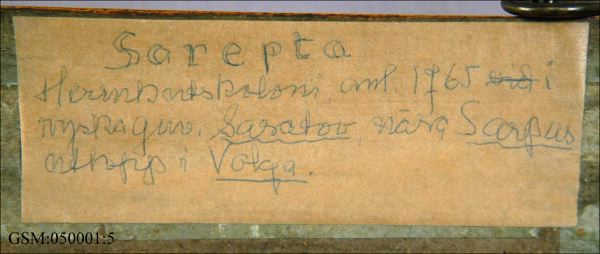 Sarepta
Herrnhutskoloni, anl. 1765 vid i
ryska guv. Saratov, nära Sarpas
utlopp i Volga.
GSM:050001:5